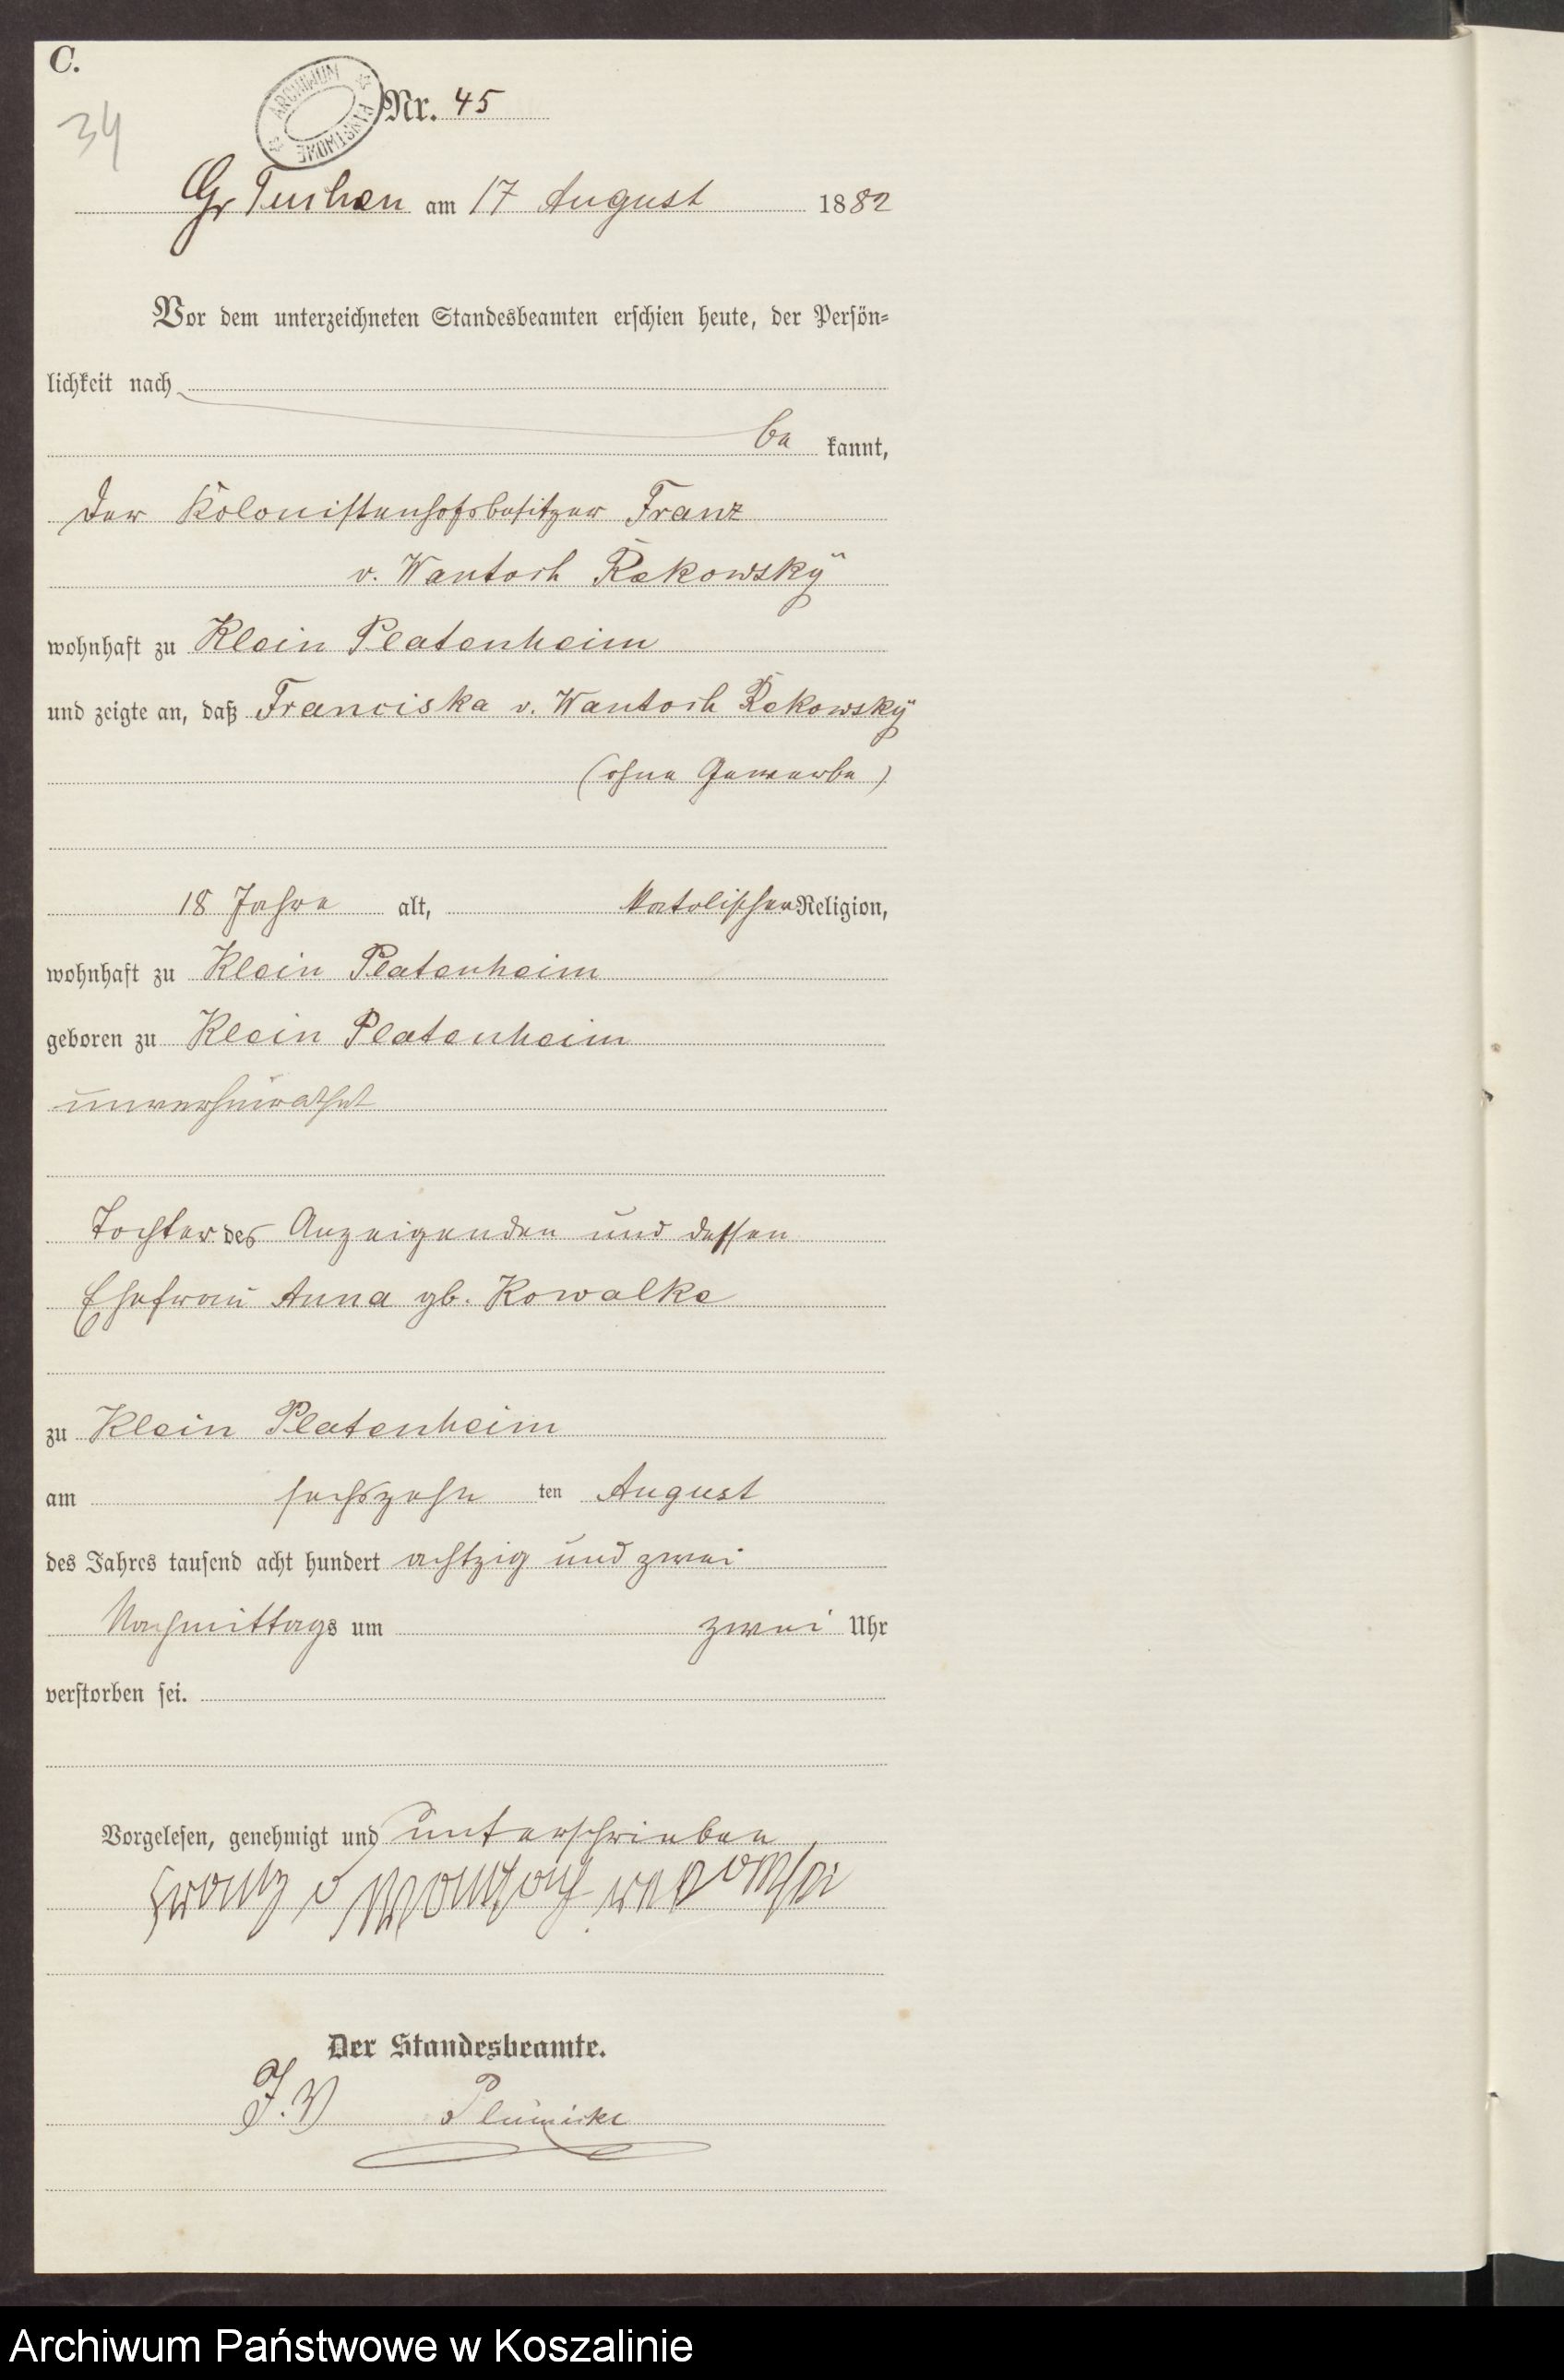 C.
34
ARCHIWUM PAŃSTWOWE
Nr. 45
Gr Tuchen am 17 August 1882
Vor dem unterzeichneten Standesbeamten erschien heute, der Persön=
lichkeit nach
be kannt,
der Kolonistenhofsbesitzer Franz
v. Wantoch Rekowskÿ
wohnhaft zu Klein Platenheim
und zeigte an, daß Franciska v. Wantoch Rekowskÿ
(ohne Gewerbe)
18 Jahre alt, katolischer Religion,
wohnhaft zu Klein Platenheim
geboren zu Klein Platenheim
unverheirathet
Tochter des Anzeigenden und dessen
Ehefrau Anna gb. Kowalke
zu Klein Platenheim
am sechszehn ten August
des Jahres tausend acht hundert achtzig und zwei
Nachmittags um zwei Uhr
verstorben sei.
Vorgelesen, genehmigt und unterschrieben
Franz v Wantoch
Der Standesbeamte.
J. V Plümicke
Archiwum Państwowe w Koszalinie